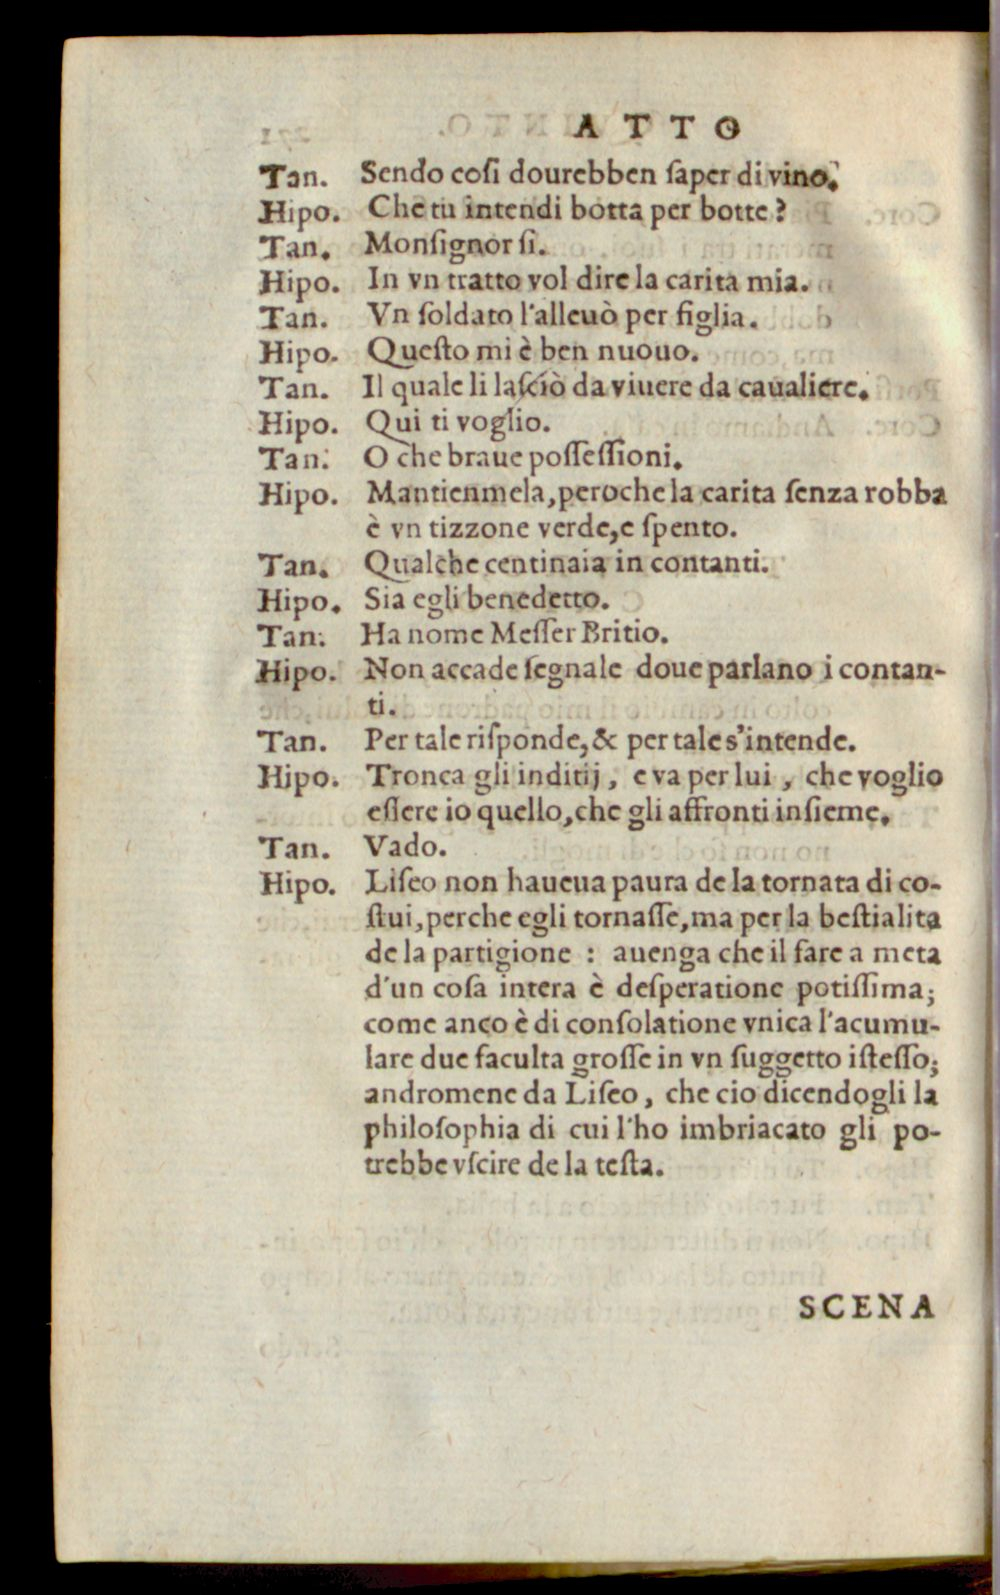 ATTO
Tan. Sendo cosi dourebben saper di vino.
Hipo. Che tu intendi botta per botte?
Tan. Monſignor ſi.
Hipo. In vn tratto vol dire la carita mia.
Tan. Vn ſoldato l'alleuò per figlia.
Hipo. Queſto mi è ben nuouo.
Tan. Il quale li laſciò da viuere da caualiere.
Hipo. Qui ti voglio.
Tan. O che braue poſſeſſioni.
Hipo. Mantienmela, peroche la carita ſenza robba
è vn tizzone verde, e ſpento.
Tan. Qualche centinaia in contanti.
Hipo. Sia egli benedetto.
Tan. Ha nome Meſſer Britio.
Hipo. Non accade ſegnale doue parlano i contan-
ti.
Tan. Per tale riſponde, & per tale s'intende.
Hipo. Tronca gli inditij, e va per lui, che voglio
eſſere io quello, che gli affronti inſieme.
Tan. Vado.
Hipo. Liſeo non haueua paura de la tornata di co-
ſtui, perche egli tornaſſe, ma per la beſtialita
de la partigione : auenga che il fare a meta
d'un coſa intera è deſperatione potiſſima;
come anco è di conſolatione vnica l'acumu-
lare due faculta groſſe in vn ſuggetto iſteſſo;
andromene da Liſeo, che cio dicendogli la
philoſophia di cui l'ho imbriacato gli po-
trebbe vſcire de la teſta.
SCENA